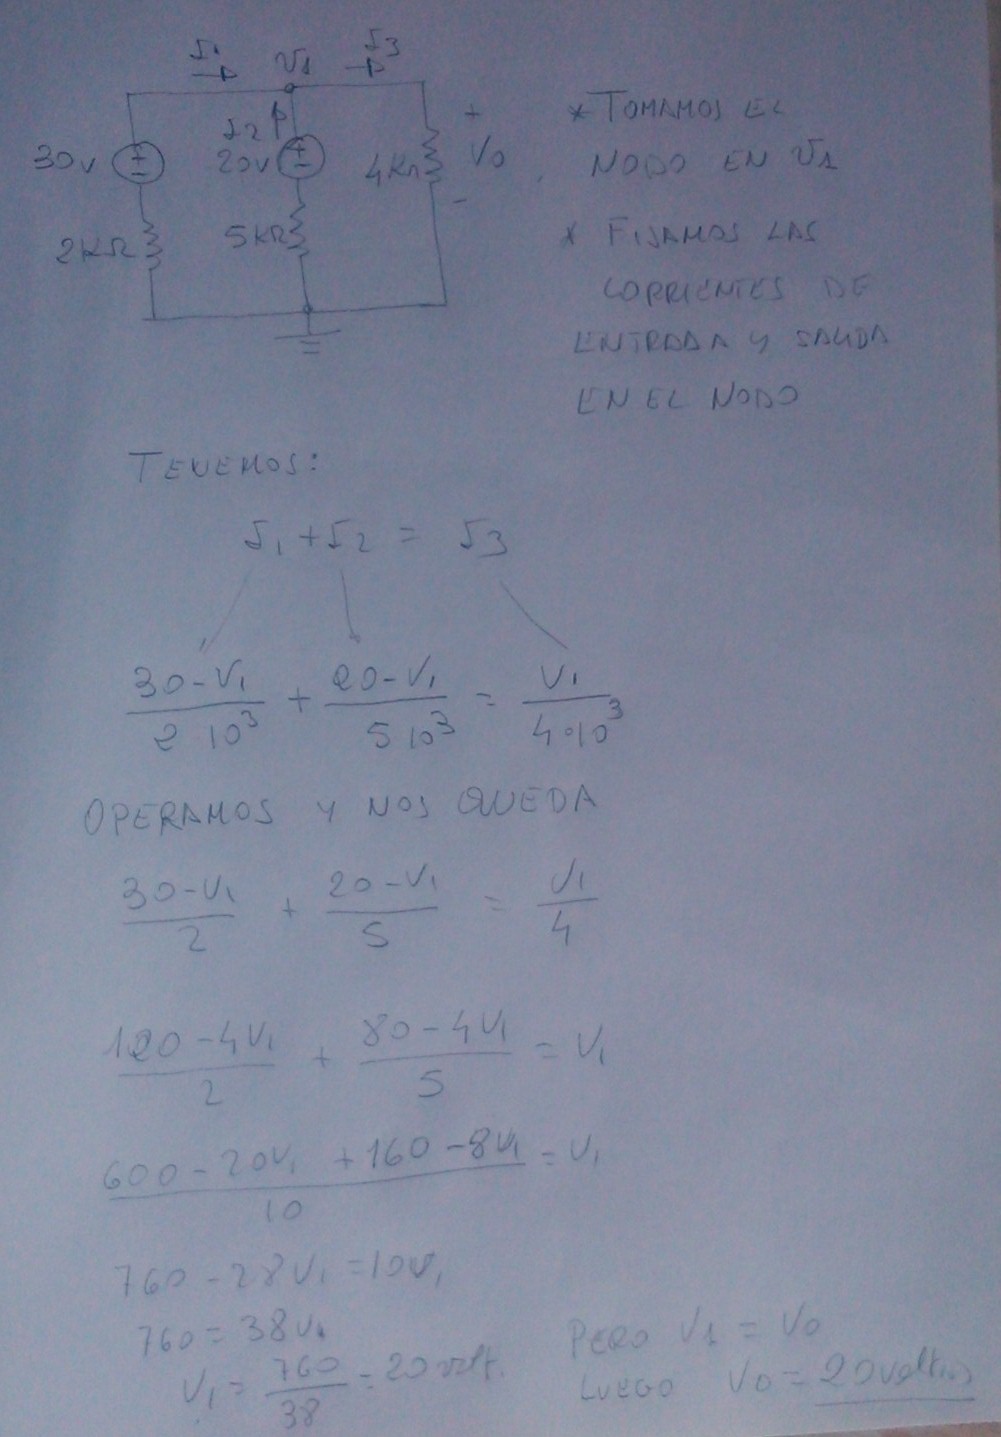 I1 V1 I3
I2
30v 20v 4KΩ + Vo -
2KΩ 5KΩ
* TOMAMOS EL
NODO EN V1
* FIJAMOS LAS
CORRIENTES DE
ENTRADA Y SALIDA
EN EL NODO
TENEMOS:
I1 + I2 = I3
30-V1 / 2 10^3 + 20-V1 / 5 10^3 = V1 / 4·10^3
OPERAMOS Y NOS QUEDA
30-V1 / 2 + 20-V1 / 5 = V1 / 4
120-4V1 / 2 + 80-4V1 / 5 = V1
600-20V1 + 160-8V1 / 10 = V1
760-28V1 = 10V1
760 = 38V1
V1 = 760 / 38 = 20 volt.
PERO V1 = Vo
LUEGO Vo = 20 voltios